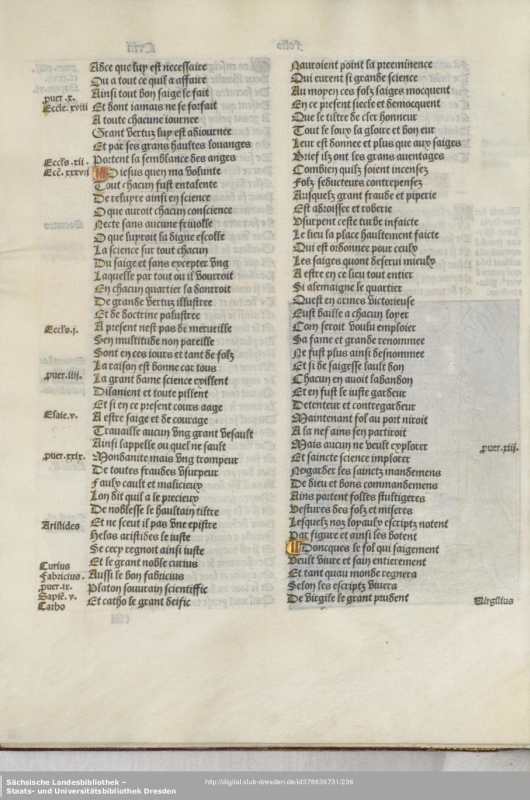 Adce que luy est necessaire
Ou a tout ce quil a affaire
Ainsi tout bon saige le fait
Et dont iamais ne se forfait
A toute chacune iournee
Grant vertuz luy est adiournee
Et par ses grans haultes louanges
Portent la semblance des anges
Diesus quen ma volunte
Tout chacun fust entalente
De reluyre ainsi en science
O que auroit chacun conscience
Necte sans aucune friuolle
O que suyroit la digne escolle
La science sur tout chacun
Du saige et sans excepter vng
Laquelle par tout ou il vourroit
En chacun quartier la donrroit
De grande vertuz illustree
Et de doctrine palustree
A present nest pas de merueille
Sen multitude non pareille
Sont en ces iours et tant de folz
La raison est bonne car tous
La grant dame science exillent
Dilanient et toute pillent
Et si en ce present cours aage
A estre saige et de courage
Trauaille aucun vng grant vesault
Ainsi lappelle ou quel ne fault
Mondanite mais vng trompeur
De toutes fraudes vsurpeur
Faulx cault et malicieux
Lon dit quil a le precieux
De noblesse le haultain tiltre
Et ne sceut il pas vne epistre
Helas aristides le iuste
Se cecy regnoit ainsi iuste
Et le grant noble curius
Aussi le bon fabricius
Platon souurain scientiffic
Et catho le grant deific
puer .x.
Eccle. xviii
Eccls .xii.
Ecc. xxxvii
Eccls. i.
puer. iiii.
Esaie. v.
puer. xxix.
Aristides
Curius
Fabricius.
puer. ix.
Sapie. v.
Catho
Nauroient point la preeminence
Qui eurent si grande science
Au moyen ces folz saiges mocquent
En ce present siecle et democquent
Que le tiltre de cler honneur
Tout le louy la gloire et bon eur
Leur est donnee et plus que aux saiges
Brief ilz ont les grans auentages
Combien quilz soient incensez
Folz seducteurs contrepensez
Ausquelz grant fraude et piperie
Est adroissee et roberie
Vsurpent ceste turbe infaicte
Le lieu la place haultement faicte
Qui est ordonnee pour ceulx
Les saiges quont deserui mieulx
A estre en ce lieu tout entier
Si alemaigne le quartier
Quest en armes victorieuse
Eust baille a chacun loyer
Com seroit voulu emploier
Sa fame et grande renommee
Ne fust plus ainsi desnommee
Et si de saigesse lault don
Chacun en auoit labandon
Et en fust le iuste gardeur
Detenteur et contregardeur
Maintenant fol au port niroit
A la nef ains sen partiroit
Mais aucun ne veult explorer
Et saincte science implorer
Regarder les sainctz mandemens
De dieu et bons commandemens
Ains portent folles stultigeres
Vestures des folz et miseres
Lesquelz noz loyaulx escriptz notent
Par figure et ainsi les dotent
Doncques le fol qui saigement
Veult viure et sain entierement
Et tant quau monde regnera
Selon les escriptz viuera
De virgile le grant prudent
puer. xiii.
Virgilius
Sächsische Landesbibliothek –
Staats- und Universitätsbibliothek Dresden
http://digital.slub-dresden.de/id376636731/236